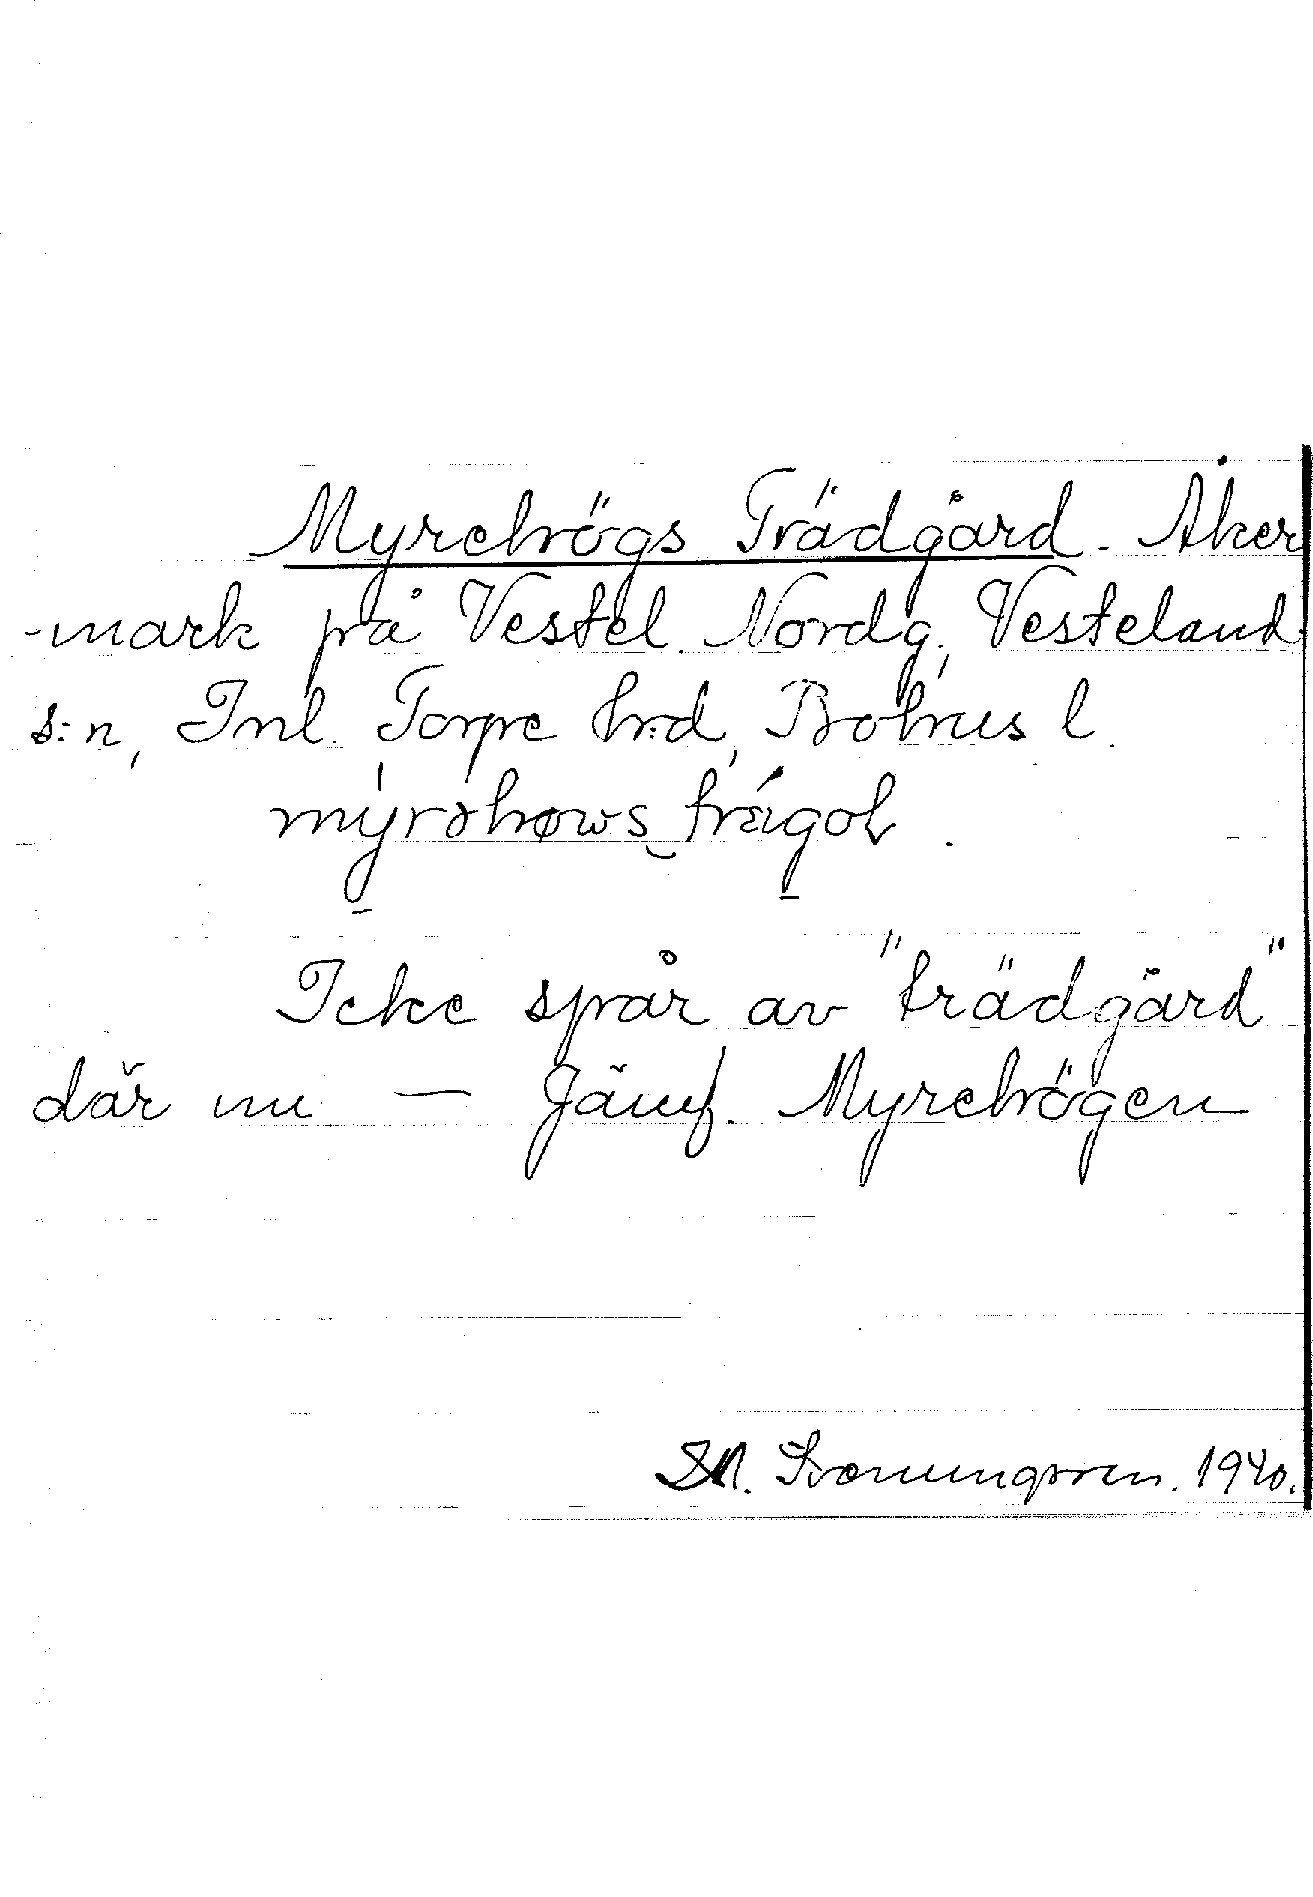 Myrehögs Trädgård. Åker
-mark på Vestel. Nordg., Vesteland
s:n, Inl. Torpe hrd, Bohus l.
Icke spår av "trädgård"
där nu — Jämf. Myrehögen
1940.